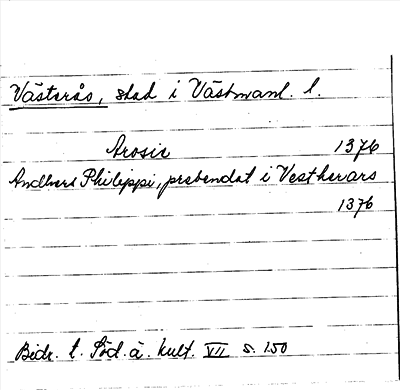 Västerås, stad i Västmanl. l.
Arosie 1376
Andhers Philippi, prebendat i Vestherars
1376
Bidr. t. Söd. ä. kult. VII s. 150